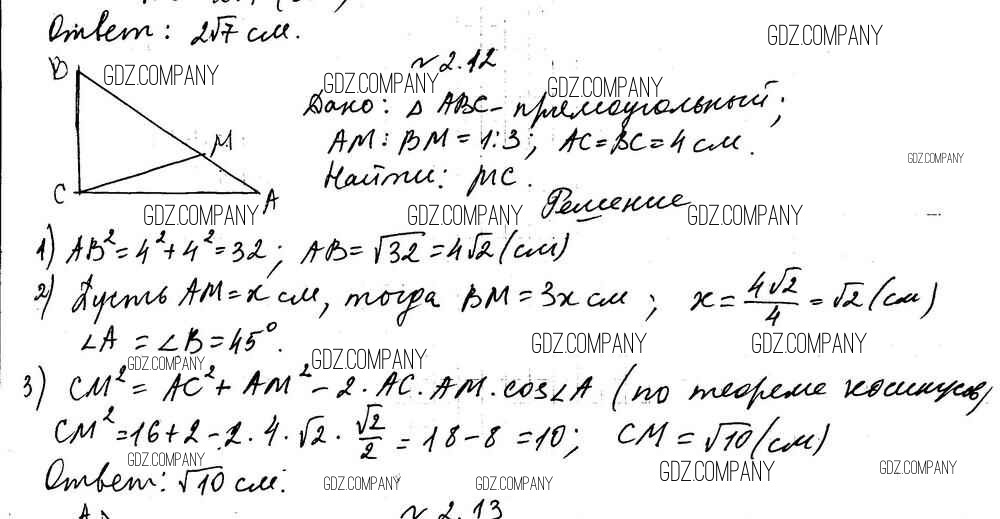 Ответ: 2√7 см.
GDZ.COMPANY
№ 2.12
B
GDZ.COMPANY
GDZ.COMPANY
GDZ.COMPANY
Дано: △ ABC - прямоугольный;
M
AM : BM = 1:3; AC = BC = 4 см.
GDZ.COMPANY
Найти: MC.
C
A
GDZ.COMPANY
GDZ.COMPANY
Решение
GDZ.COMPANY
1) AB² = 4² + 4² = 32; AB = √32 = 4√2 (см)
2) Пусть AM = x см, тогда BM = 3x см; x = 4√2/4 = √2 (см)
∠A = ∠B = 45°.
GDZ.COMPANY
GDZ.COMPANY
GDZ.COMPANY
GDZ.COMPANY
3) CM² = AC² + AM² - 2 · AC · AM · cos∠A (по теореме косинусов)
CM² = 16 + 2 - 2 · 4 · √2 · √2/2 = 18 - 8 = 10; CM = √10 (см)
GDZ.COMPANY
GDZ.COMPANY
GDZ.COMPANY
Ответ: √10 см.
GDZ.COMPANY
GDZ.COMPANY
№ 2.13